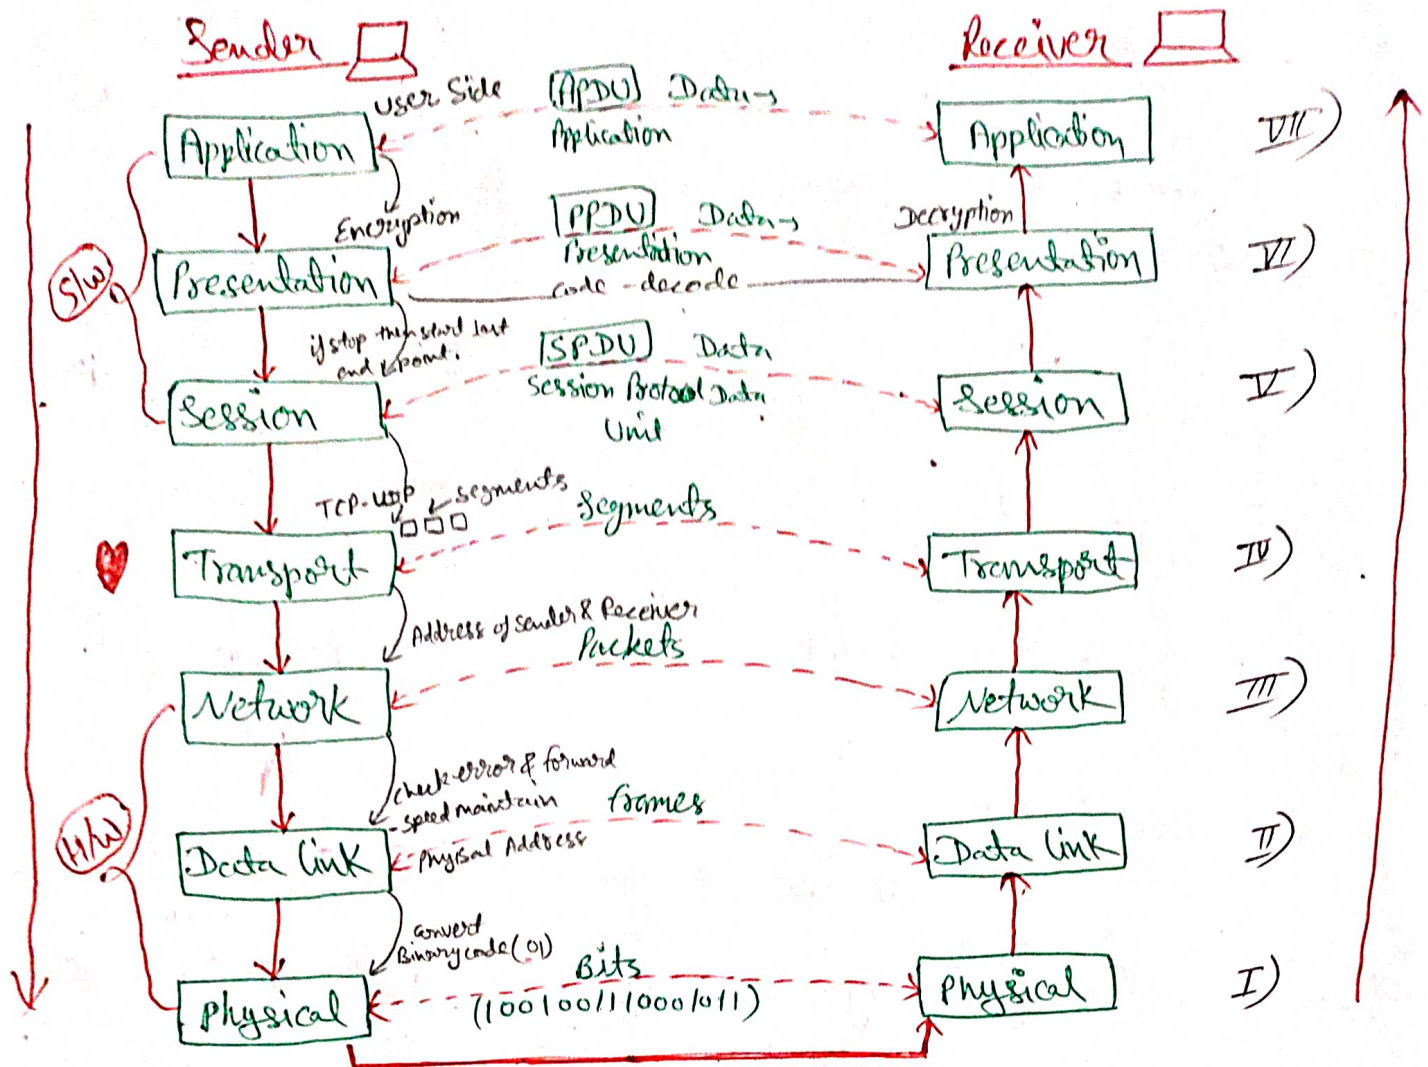 Sender
Receiver
User Side
APDU Data
Application
Application
Application
VII)
Encryption
PPDU Data
Presentation
Decryption
Presentation
Presentation
VI)
code - decode
S/W
if stop then start last
end point.
SPDU Data
Session Protocol Data
Unit
Session
Session
V)
TCP-UDP
segments
Segments
Transport
Transport
IV)
Address of sender & Receiver
Packets
Network
Network
III)
check error & forward
- speed maintain
frames
- Physical Address
H/W
Data link
Data link
II)
convert
Binary code (01)
Bits
(1001001110001011)
Physical
Physical
I)